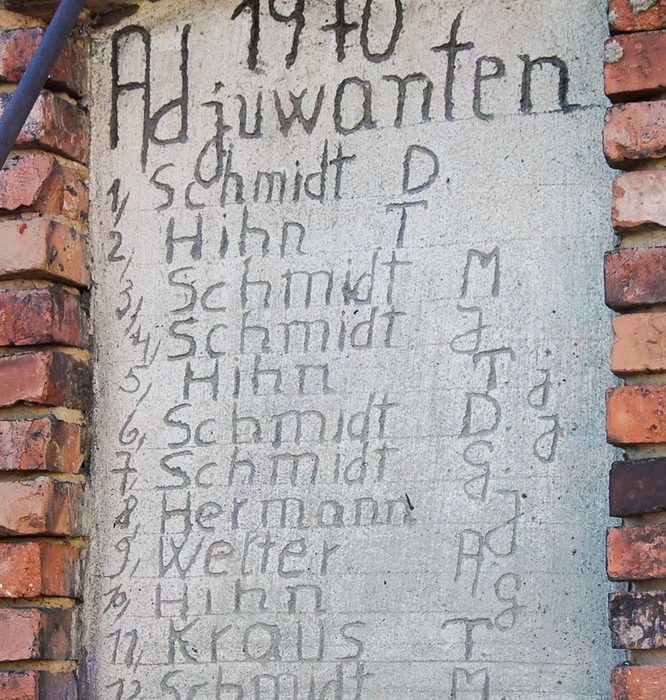 1970
Adjuwanten
1, Schmidt D.
2, Hihn T
3, Schmidt M
4, Schmidt J
5, Hihn T. j
6, Schmidt D. j
7, Schmidt G.
8, Hermann J
9, Welter A.
10, Hihn g
11, Kraus T.
12 Schmidt M